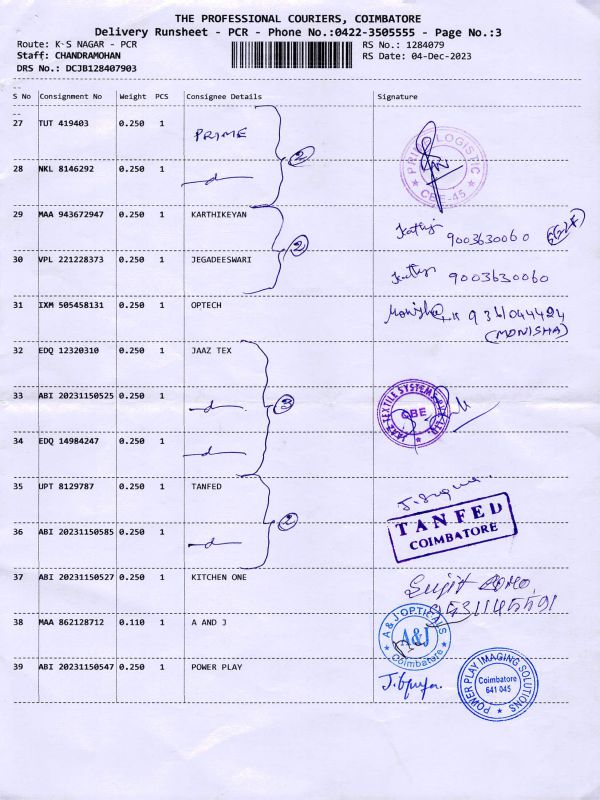 THE PROFESSIONAL COURIERS, COIMBATORE
Delivery Runsheet - PCR - Phone No.:0422-3505555 - Page No.:3
Route: K·S NAGAR - PCR RS No.: 1284079
Staff: CHANDRAMOHAN RS Date: 04-Dec-2023
DRS No.: DCJB128407903
S No Consignment No Weight PCS Consignee Details Signature
27 TUT 419403 0.250 1 PRIME
28 NKL 8146292 0.250 1 2 CBE-45
29 MAA 943672947 0.250 1 KARTHIKEYAN 9003630060
30 VPL 221228373 0.250 1 JEGADEESWARI 2 9003630060
31 IXM 505458131 0.250 1 OPTECH Monisha 9361044424
(MONISHA)
32 EDQ 12320310 0.250 1 JAAZ TEX
33 ABI 20231150525 0.250 1 3 JAAZ TEXTILE SYSTEMS PVT LTD CBE
34 EDQ 14984247 0.250 1
35 UPT 8129787 0.250 1 TANFED
36 ABI 20231150585 0.250 1 2 TANFED COIMBATORE
37 ABI 20231150527 0.250 1 KITCHEN ONE Sujit
38 MAA 862128712 0.110 1 A AND J A & J OPTICALS A&J Coimbatore
39 ABI 20231150547 0.250 1 POWER PLAY POWER PLAY IMAGING SOLUTIONS Coimbatore 641 045